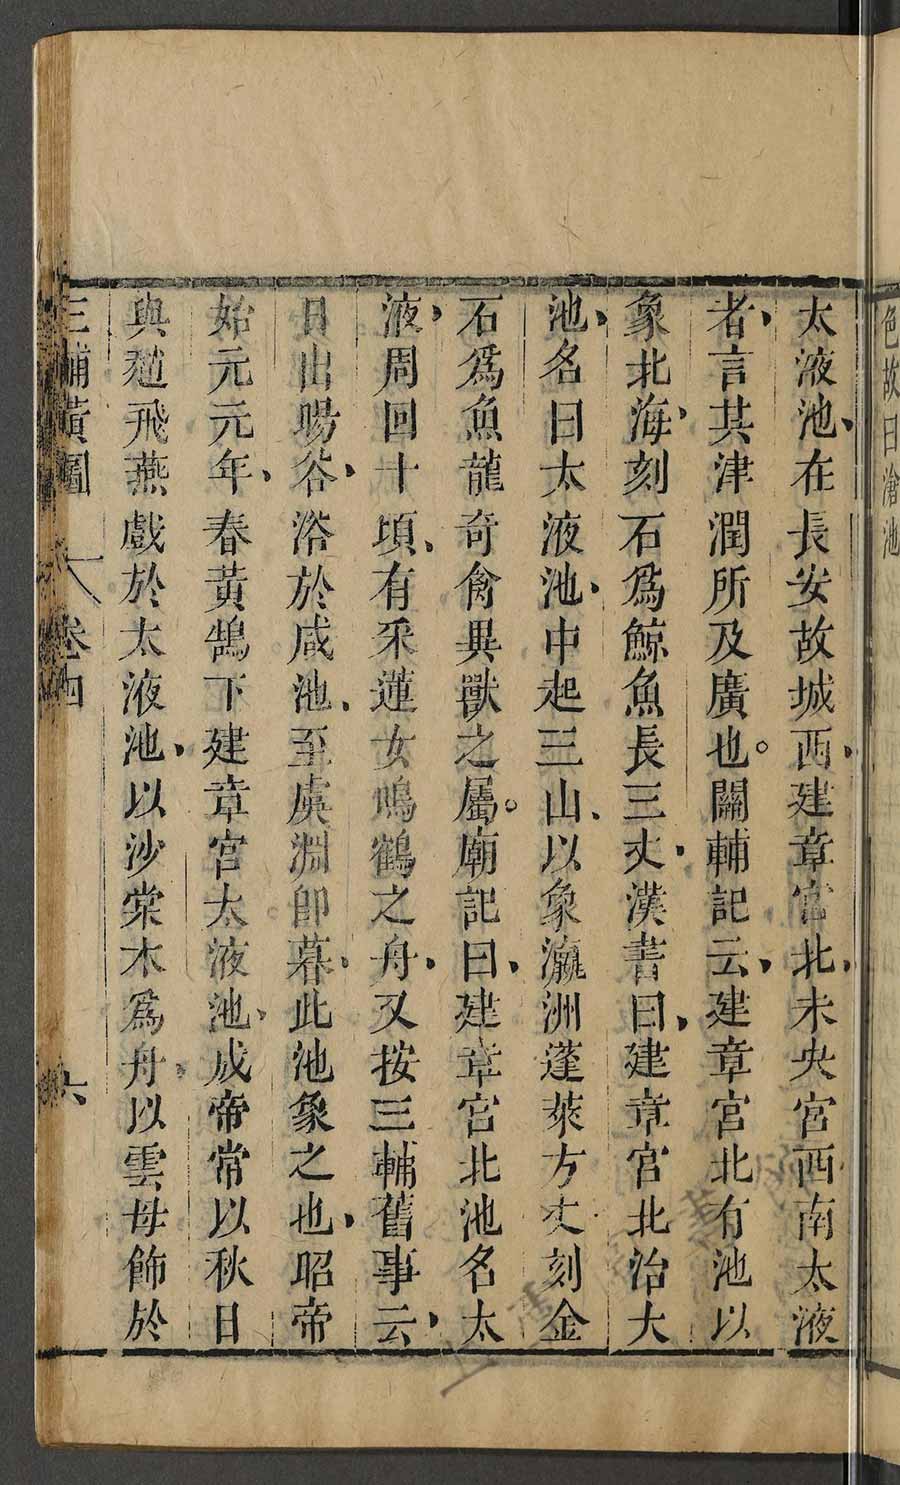 色故曰滄池
太液池、在長安故城西、建章宮北、未央宮西南太液
者、言其津潤所及廣也。關輔記云、建章宮北有池以
象北海、刻石爲鯨魚長三丈、漢書曰、建章宮北治大
池、名曰太液池、中起三山、以象瀛洲蓬萊方丈刻金
石爲魚龍奇禽異獸之屬。廟記曰、建章宮北池名太
液、周回十頃、有采蓮女鳴鶴之舟、又按三輔舊事云、
日出暘谷、浴於咸池、至虞淵卽暮、此池象之也、昭帝
始元元年、春黃鵠下建章宮太液池、成帝常以秋日
與趙飛燕戲於太液池、以沙棠木爲舟、以雲母飾於
三輔黃圖 卷四 六